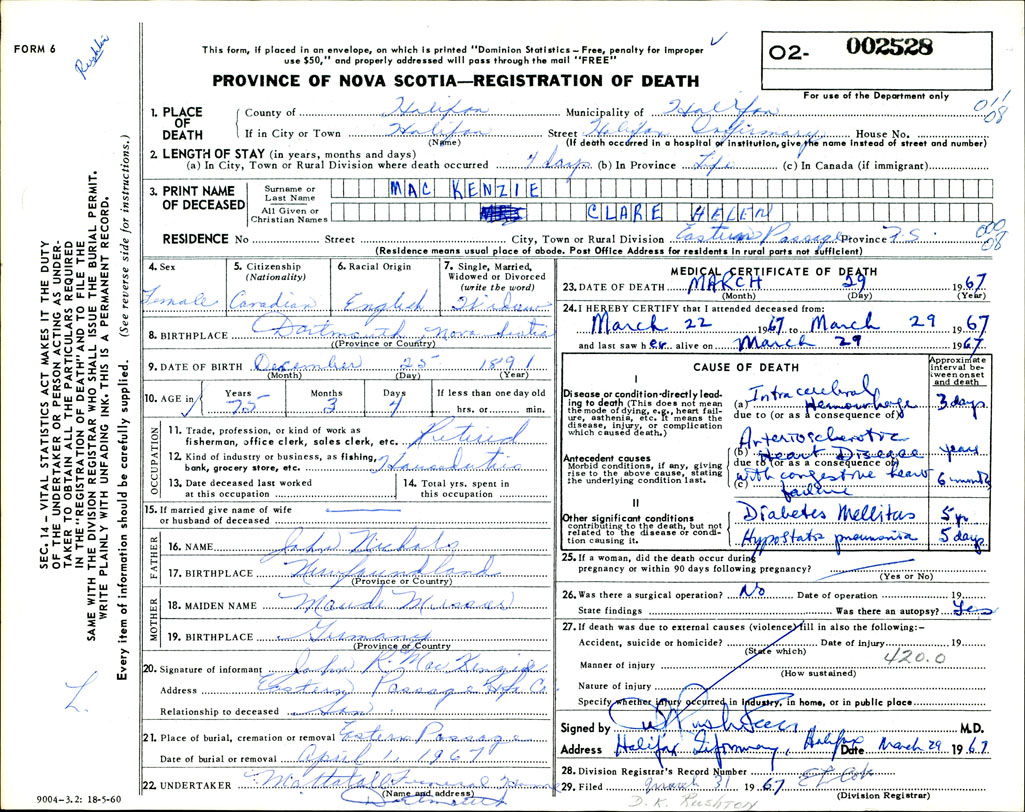 FORM 6
Rushton
This form, if placed in an envelope, on which is printed "Dominion Statistics – Free, penalty for improper
use $50," and properly addressed will pass through the mail "FREE"
PROVINCE OF NOVA SCOTIA—REGISTRATION OF DEATH
O2- 002528
For use of the Department only
SEC. 14 – VITAL STATISTICS ACT MAKES IT THE DUTY
OF THE UNDERTAKER OR PERSON ACTING AS UNDER-
TAKER TO OBTAIN ALL THE PARTICULARS REQUIRED
IN THE "REGISTRATION OF DEATH" AND TO FILE THE
SAME WITH THE DIVISION REGISTRAR WHO SHALL ISSUE THE BURIAL PERMIT.
WRITE PLAINLY WITH UNFADING INK. THIS IS A PERMANENT RECORD.
Every item of information should be carefully supplied. (See reverse side for instructions.)
1. PLACE OF DEATH
County of Halifax Municipality of Halifax
If in City or Town Halifax Street Halifax Infirmary House No.
(Name) (If death occurred in a hospital or institution, give the name instead of street and number)
08
2. LENGTH OF STAY (in years, months and days)
(a) In City, Town or Rural Division where death occurred 7 days (b) In Province Life (c) In Canada (if immigrant)
3. PRINT NAME OF DECEASED
Surname or Last Name MAC KENZIE
All Given or Christian Names CLARE HELEN
RESIDENCE No Street City, Town or Rural Division Eastern Passage Province N.S.
000
08
(Residence means usual place of abode. Post Office Address for residents in rural parts not sufficient)
4. Sex Female
5. Citizenship (Nationality) Canadian
6. Racial Origin English
7. Single, Married, Widowed or Divorced (write the word) Widow
8. BIRTHPLACE Dartmouth, Nova Scotia
(Province or Country)
9. DATE OF BIRTH December 25 1891
(Month) (Day) (Year)
10. AGE in Years 75 Months 3 Days 4 If less than one day old hrs. or min.
OCCUPATION
11. Trade, profession, or kind of work as fisherman, office clerk, sales clerk, etc. Retired
12. Kind of industry or business, as fishing, bank, grocery store, etc. Housedutie
13. Date deceased last worked at this occupation
14. Total yrs. spent in this occupation
15. If married give name of wife or husband of deceased
FATHER
16. NAME John Nichols
17. BIRTHPLACE Newfoundland
(Province or Country)
MOTHER
18. MAIDEN NAME Maude
19. BIRTHPLACE Germany
(Province or Country)
20. Signature of informant John R. MacKenzie
Address Eastern Passage Hfx Co.
Relationship to deceased Son
21. Place of burial, cremation or removal Eastern Passage
Date of burial or removal April 1, 1967
22. UNDERTAKER Mattatall Funeral Home
(Name and address)
Dartmouth
9004-3.2: 18-5-60
MEDICAL CERTIFICATE OF DEATH
23. DATE OF DEATH MARCH 29 1967
(Month) (Day) (Year)
24. I HEREBY CERTIFY that I attended deceased from:
March 22 1967 to March 29 1967
and last saw her alive on March 29 1967.
CAUSE OF DEATH
Approximate interval between onset and death
I
Disease or condition directly leading to death (This does not mean the mode of dying, e.g., heart failure, asthenia, etc. It means the disease, injury, or complication which caused death.)
(a) Intracerebral Hemorrhage 3 days
due to (or as a consequence of)
Antecedent causes
Morbid conditions, if any, giving rise to the above cause, stating the underlying condition last.
(b) Arteriosclerotic Heart Disease years
due to (or as a consequence of)
(c) with congestive heart failure 6 months
II
Other significant conditions contributing to the death, but not related to the disease or condition causing it.
Diabetes Mellitus 5 yr
Hypostatic pneumonia 5 days
25. If a woman, did the death occur during pregnancy or within 90 days following pregnancy?
(Yes or No)
26. Was there a surgical operation? No Date of operation 19
State findings Was there an autopsy? Yes
27. If death was due to external causes (violence) fill in also the following:-
Accident, suicide or homicide? Date of injury 19
(State which)
420.0
Manner of injury
(How sustained)
Nature of injury
Specify whether injury occurred in Industry, in home, or in public place
Signed by M.D.
Address Halifax Infirmary, Halifax Date March 29 1967
28. Division Registrar's Record Number
29. Filed March 31 1967
(Division Registrar)
D. K. RUSHTON